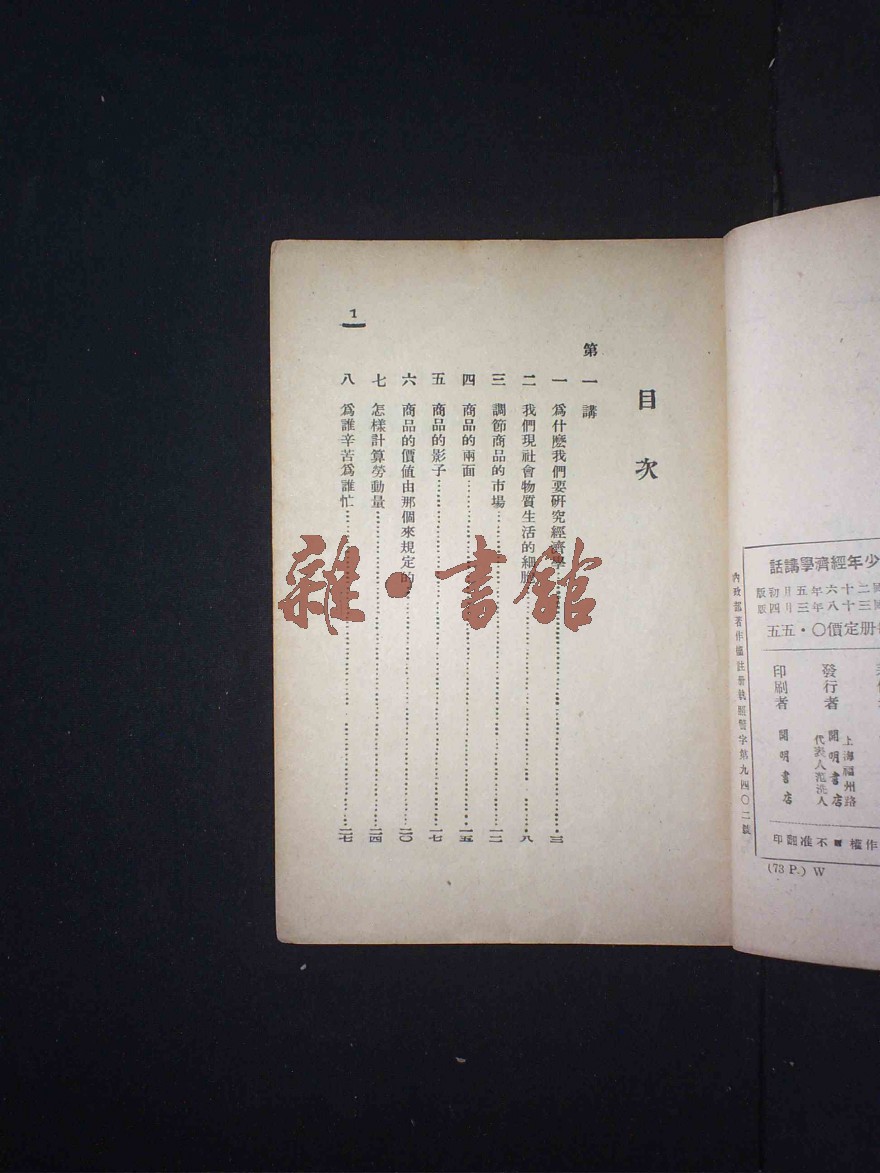 目次
第一講
一 爲什麽我們要研究經濟學……三
二 我們現社會物質生活的細胞……八
三 調節商品的市場……一二
四 商品的兩面……一五
五 商品的影子……一七
六 商品的價値由那個來規定的……二〇
七 怎樣計算勞動量……二四
八 爲誰辛苦爲誰忙……二七
1
雜·書館
少年經濟學講話
國二十六年五月初版
國三十八年三月四版
册定價〇·五五
發行者
上海福州路
開明書店
代表人范洗人
印刷者
開明書店
作權■不准翻印
內政部著作權註册執照警字第九四〇二號
(73 P.) W